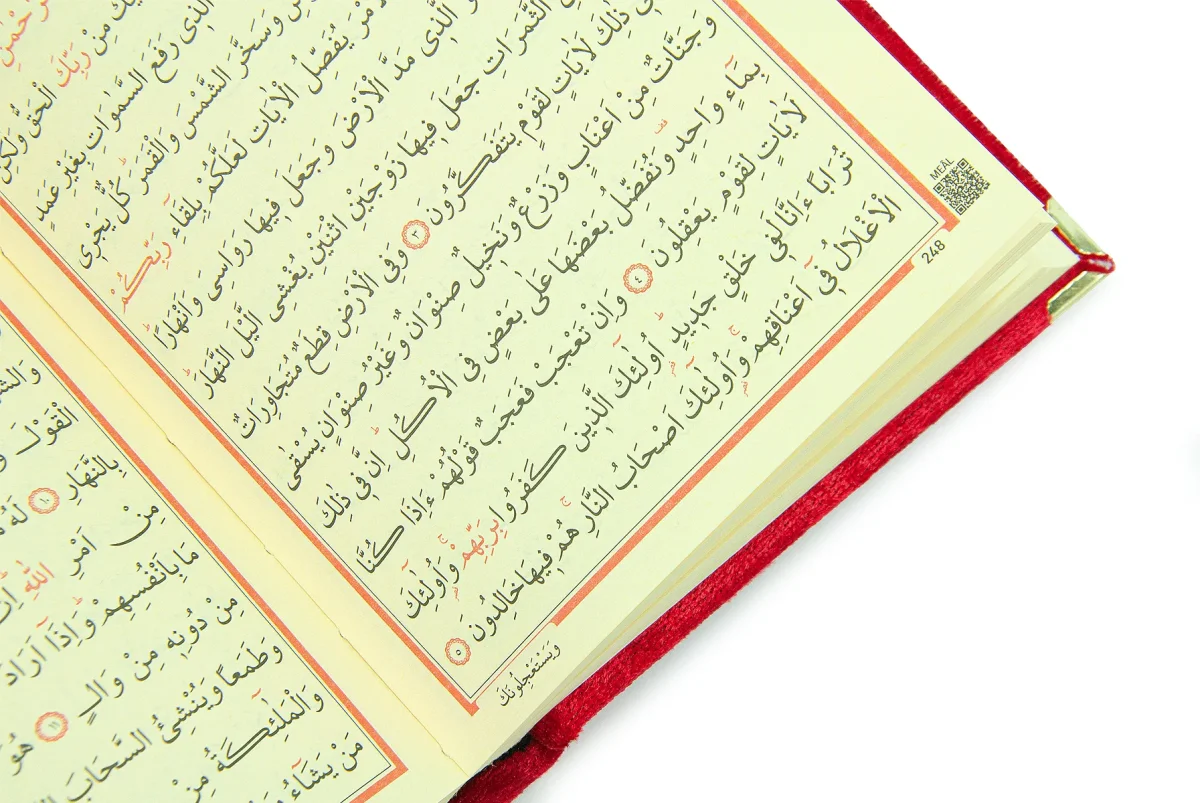 مِنْ رَبِّكَ الْحَقُّ وَلٰكِنَّ
الَّذِى رَفَعَ السَّمٰوَاتِ بِغَيْرِ عَمَدٍ
وَسَخَّرَ الشَّمْسَ وَالْقَمَرَ كُلٌّ يَجْرِى
يُفَصِّلُ الْاٰيَاتِ لَعَلَّكُمْ بِلِقَٓاءِ رَبِّكُمْ
الَّذِى مَدَّ الْاَرْضَ وَجَعَلَ فِيهَا رَوَاسِىَ وَاَنْهَارًا
الثَّمَرَاتِ جَعَلَ فِيهَا زَوْجَيْنِ اثْنَيْنِ يُغْشِى الَّيْلَ النَّهَارَ
فِى ذٰلِكَ لَاٰيَاتٍ لِقَوْمٍ يَتَفَكَّرُونَ ٣ وَفِى الْاَرْضِ قِطَعٌ مُتَجَاوِرَاتٌ
وَجَنَّاتٌ مِنْ اَعْنَابٍ وَزَرْعٌ وَنَخِيلٌ صِنْوَانٌ وَغَيْرُ صِنْوَانٍ يُسْقٰى
بِمَٓاءٍ وَاحِدٍ وَنُفَضِّلُ بَعْضَهَا عَلٰى بَعْضٍ فِى الْاُكُلِ اِنَّ فِى ذٰلِكَ
لَاٰيَاتٍ لِقَوْمٍ يَعْقِلُونَ ٤ وَاِنْ تَعْجَبْ فَعَجَبٌ قَوْلُهُمْ ءَاِذَا كُنَّا
تُرَابًا ءَاِنَّا لَفِى خَلْقٍ جَدِيدٍ اُو۬لٰٓئِكَ الَّذِينَ كَفَرُوا بِرَبِّهِمْ وَاُو۬لٰٓئِكَ
الْاَغْلَالُ فِٓى اَعْنَاقِهِمْ وَاُو۬لٰٓئِكَ اَصْحَابُ النَّارِ هُمْ فِيهَا خَالِدُونَ ٥
وَيَسْتَعْجِلُونَكَ
MEÂL
248
الْقَوْلَ
بِالنَّهَارِ ١٠ لَهُ
مِنْ اَمْرِ اللّٰهِ
مَا بِاَنْفُسِهِمْ وَاِذَٓا اَرَادَ
مِنْ دُونِهِ مِنْ وَالٍ ١١ هُوَ
وَطَمَعًا وَيُنْشِئُ السَّحَابَ
وَالْمَلٰٓئِكَةُ مِنْ
مَنْ يَشَٓاءُ